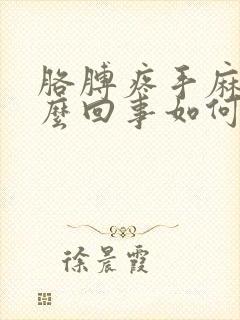 胳膊疼手麻
麼回事如何
徐晨霞